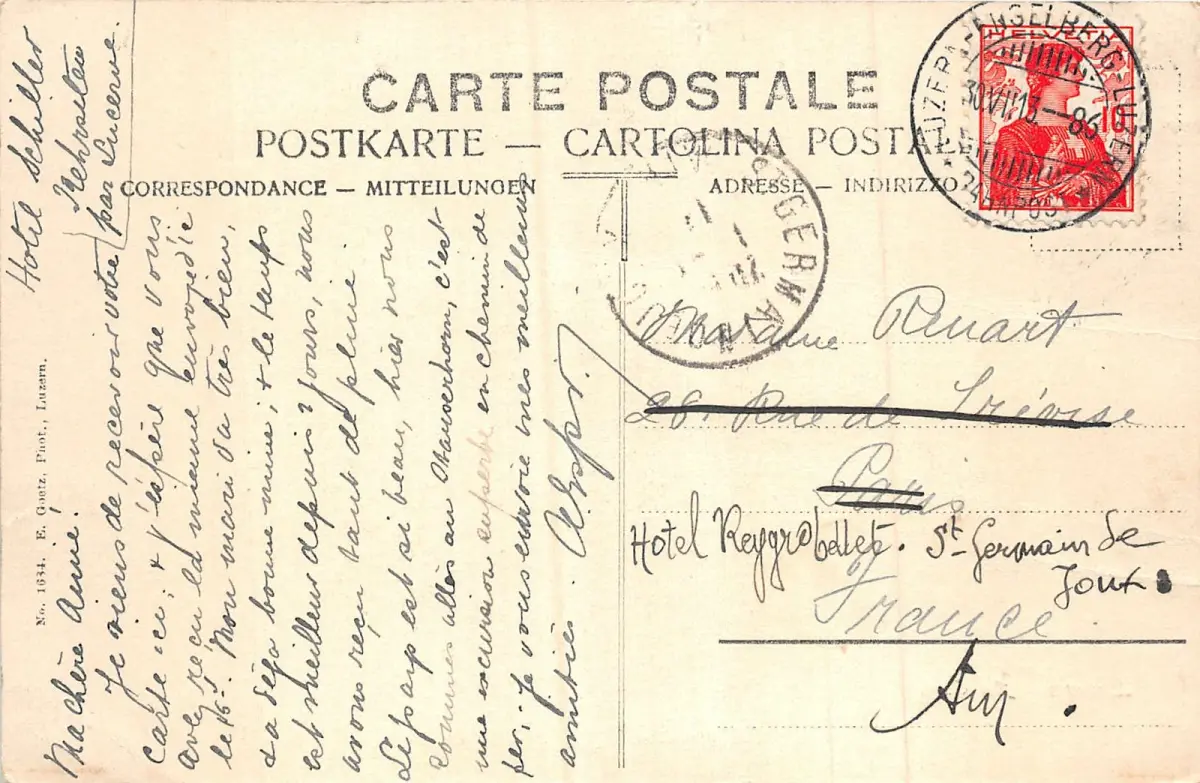 CARTE POSTALE
POSTKARTE — CARTOLINA POSTALE
CORRESPONDANCE — MITTEILUNGEN
ADRESSE — INDIRIZZO
HELVETIA
10
LUZERN-ENGELBERG-LUZERN
30.VII.13.—86
ST GERMAIN
Hotel Schiller
Kehrsiten
par Lucerne
Ma chère Amie!
Je viens de recevoir votre
carte ici, + j'espère que vous
avez reçu la mienne envoyée
le 15. Mon mari va très bien,
+ a déjà bonne mine, + le temps
est meilleur depuis 2 jours, nous
avons reçu tant de pluie.
Le pays est si beau, hier nous
sommes allés au Stanserhorn, c'est
une excursion superbe en chemin de
fer. Je vous envoie mes meilleures
amitiés.
Madame Renart
28. Rue de Trévise
Paris
Hotel St Germain de
Joux.
France
Ain.
No. 1634. E. Goetz, Phot., Luzern.